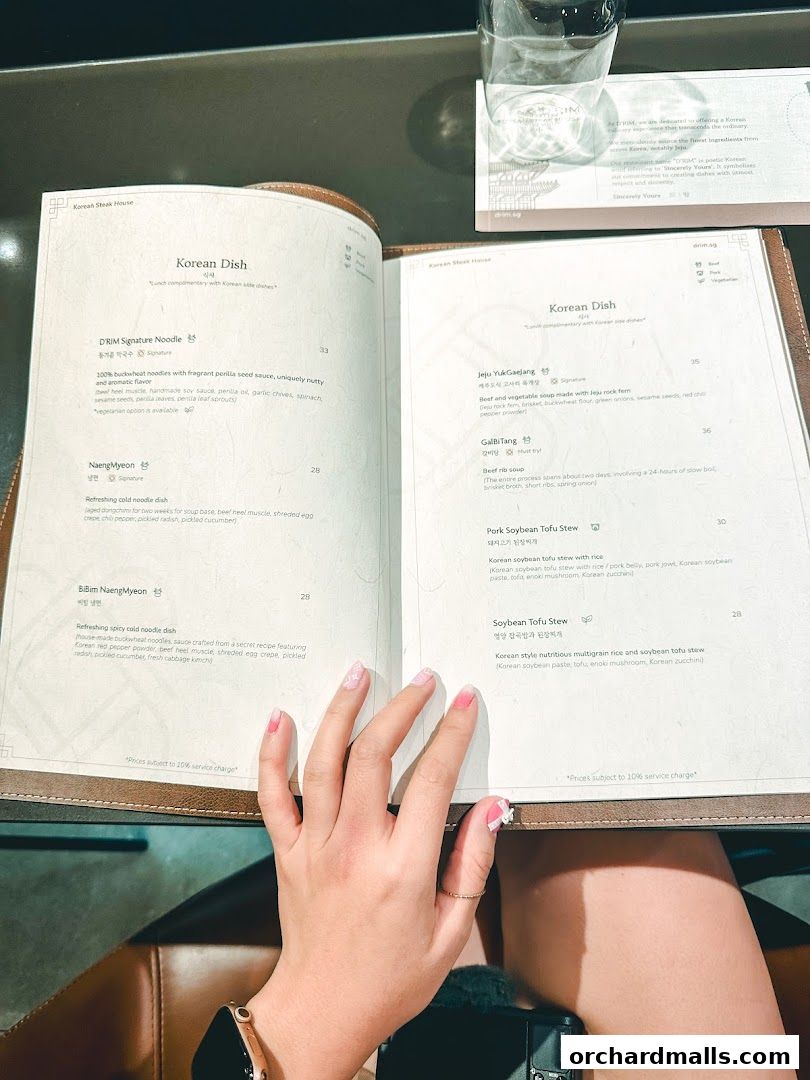 As D'RIM, we are dedicated to offering a Korean
culinary experience that transcends the ordinary.
We meticulously source the finest ingredients from
across Korea, notably Jeju.
Our restaurant name "D'RIM" is poetic Korean
word referring to 'Sincerely Yours'. It symbolises
our commitment to creating dishes with utmost
respect and sincerity.
Sincerely Yours
drim.sg
Korean Steak House
drim.sg
Beef
Pork
Vegetarian
Korean Dish
식사
*Lunch complimentary with Korean side dishes*
D'RIM Signature Noodle
33
들기름 막국수 Signature
100% buckwheat noodles with fragrant perilla seed sauce, uniquely nutty
and aromatic flavor
(beef heel muscle, handmade soy sauce, perilla oil, garlic chives, spinach,
sesame seeds, perilla leaves, perilla leaf sprouts)
*vegetarian option is available
NaengMyeon
28
냉면 Signature
Refreshing cold noodle dish
(aged dongchimi for two weeks for soup base, beef heel muscle, shredded egg
crepe, chili pepper, pickled radish, pickled cucumber)
BiBim NaengMyeon
28
비빔 냉면
Refreshing spicy cold noodle dish
(house-made buckwheat noodles, sauce crafted from a secret recipe featuring
Korean red pepper powder, beef heel muscle, shredded egg crepe, pickled
radish, pickled cucumber, fresh cabbage kimchi)
*Prices subject to 10% service charge*
Korean Steak House
drim.sg
Beef
Pork
Vegetarian
Korean Dish
식사
*Lunch complimentary with Korean side dishes*
Jeju YukGaeJang
35
제주도식 고사리 육개장 Signature
Beef and vegetable soup made with Jeju rock fern
(Jeju rock fern, brisket, buckwheat flour, green onions, sesame seeds, red chili
pepper powder)
GalBiTang
36
갈비탕 Must try!
Beef rib soup
(The entire process spans about two days, involving a 24-hours of slow boil,
brisket broth, short ribs, spring onion)
Pork Soybean Tofu Stew
30
돼지고기 된장찌개
Korean soybean tofu stew with rice
(Korean soybean tofu stew with rice / pork belly, pork jowl, Korean soybean
paste, tofu, enoki mushroom, Korean zucchini)
Soybean Tofu Stew
28
영양 잡곡밥과 된장찌개
Korean style nutritious multigrain rice and soybean tofu stew
(Korean soybean paste, tofu, enoki mushroom, Korean zucchini)
*Prices subject to 10% service charge*
orchardmalls.com